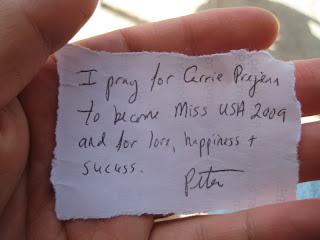 I pray for Carrie Prejean
to become Miss USA 2009
and for love, happiness +
success.
Peter